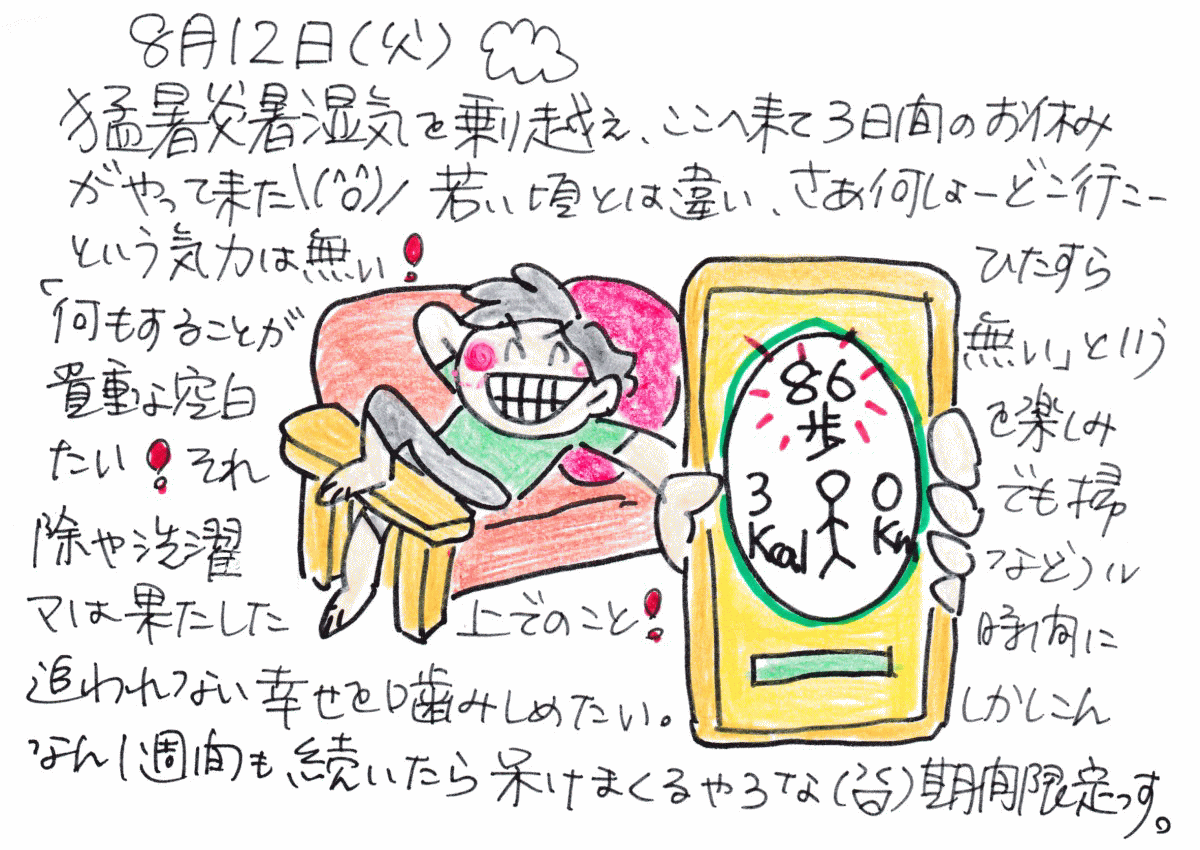 8月12日(火)
猛暑炎暑湿気を乗り越え、ここへ来て3日間のお休み
がやって来た\(^o^)/ 若い頃とは違い、さあ何しよーどこ行こー
という気力は無い! ひたすら
「何もすることが 無い」という
貴重な空白 を楽しみ
たい!それ でも掃
除や洗濯 などノル
マは果たした 上でのこと! 時間に
追われない幸せを噛みしめたい。 しかしこん
なん1週間も続いたら呆けまくるやろな(笑)期間限定っす。
86
歩
3 0
Kcal Km